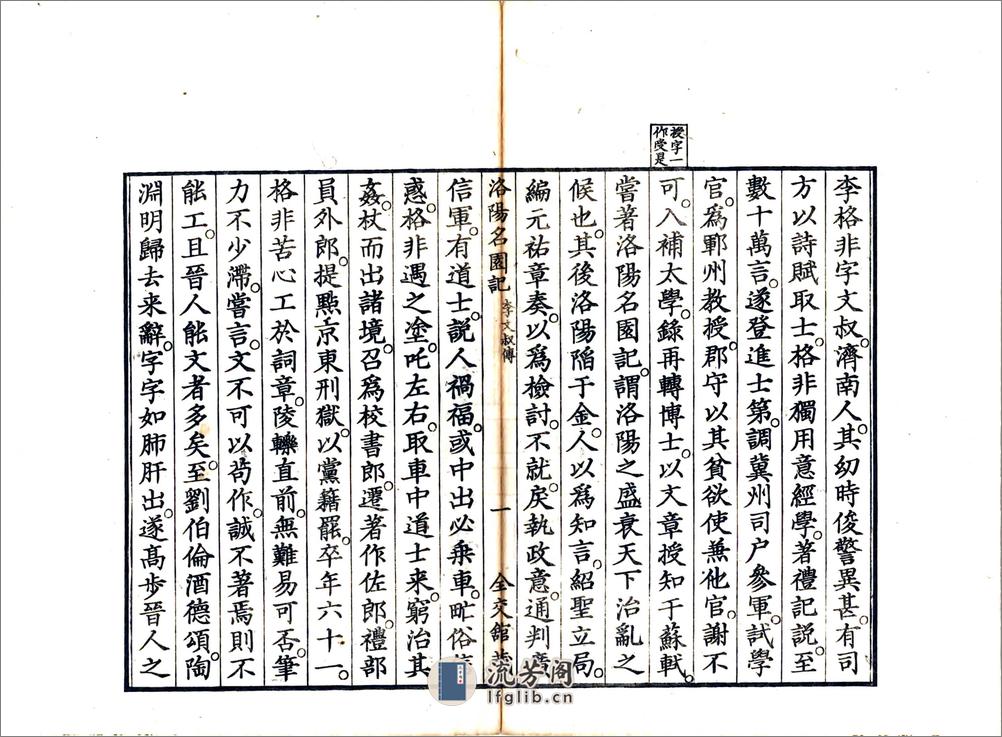 授字一
作受是
李格非字文叔。濟南人。其幼時俊警異甚。有司
方以詩賦取士。格非獨用意經學。著禮記說。至
數十萬言。遂登進士第。調冀州司户參軍。試學
官。爲鄆州教授。郡守以其貧。欲使兼他官。謝不
可。入補太學。錄再轉博士。以文章授知于蘇軾。
嘗著洛陽名園記。謂洛陽之盛衰。天下治亂之
候也。其後洛陽陷于金。人以爲知言。紹聖立局。
編元祐章奏。以爲檢討。不就。戾執政意。通判廣
洛陽名園記 李文叔傳 一 全交館
信軍。有道士。說人禍福。或中。出必乘車。甿俗
惑。格非遇之塗。叱左右。取車中道士來。窮治其
姦。杖而出諸境。召爲校書郎。遷著作佐郎。禮部
員外郎。提點京東刑獄。以黨籍罷。卒年六十一。
格非苦心工於詞章。陵轢直前。無難易可否。筆
力不少滯。嘗言。文不可以苟作。誠不著焉。則不
能工。且晉人能文者多矣。至劉伯倫酒德頌。陶
淵明歸去来辭。字字如肺肝出。遂高步晉人之
流芳阁
lfglib.cn